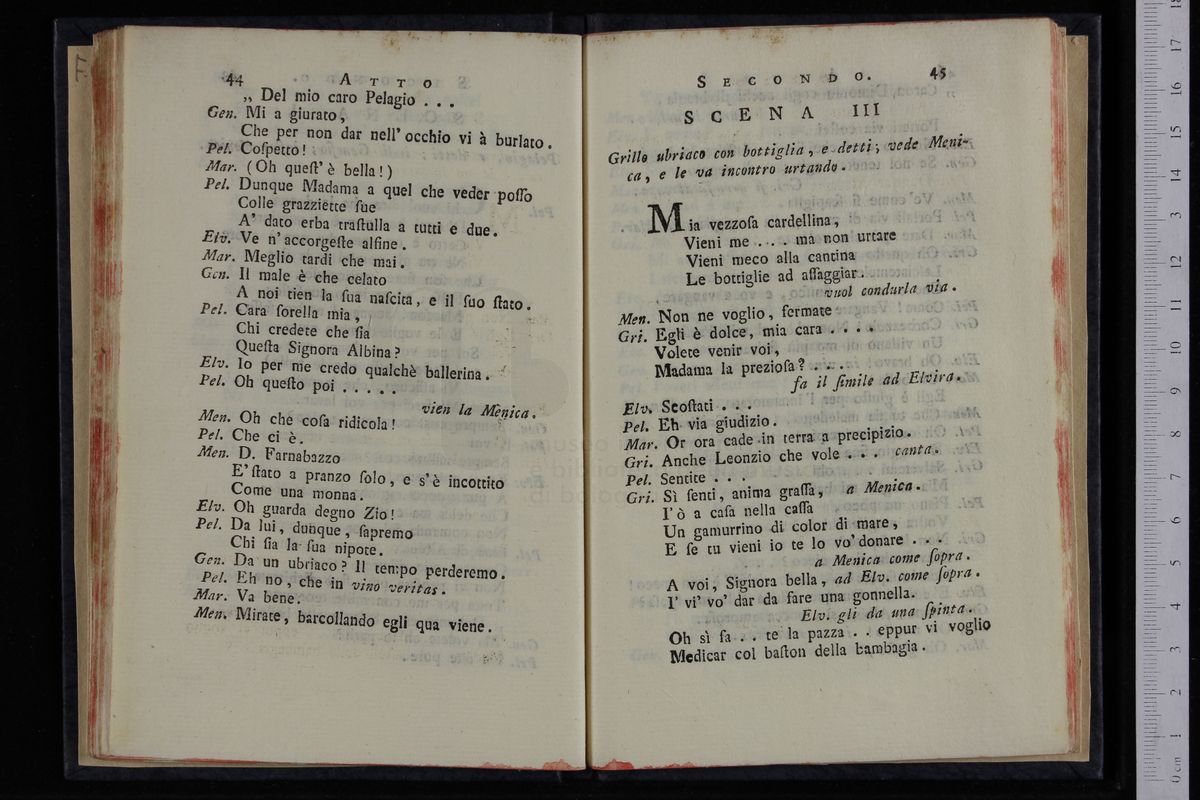 44 ATTO
„ Del mio caro Pelagio . . .
Gen. Mi a giurato,
Che per non dar nell' occhio vi à burlato.
Pel. Coſpetto!
Mar. (Oh queſt' è bella!)
Pel. Dunque Madama a quel che veder poſſo
Colle grazziette ſue
A' dato erba traſtulla a tutti e due.
Elv. Ve n' accorgeſte alfine.
Mar. Meglio tardi che mai.
Gen. Il male è che celato
A noi tien la ſua naſcita, e il ſuo ſtato.
Pel. Cara ſorella mia,
Chi credete che ſia
Queſta Signora Albina?
Elv. Io per me credo qualchè ballerina.
Pel. Oh queſto poi . . . .
vien la Menica.
Men. Oh che coſa ridicola!
Pel. Che ci è.
Men. D. Farnabazzo
E' ſtato a pranzo ſolo, e s'è incottito
Come una monna.
Elv. Oh guarda degno Zio!
Pel. Da lui, dunque, ſapremo
Chi ſia la ſua nipote.
Gen. Da un ubriaco? Il tempo perderemo.
Pel. Eh no, che in vino veritas.
Mar. Va bene.
Men. Mirate, barcollando egli qua viene.
SECONDO. 45
SCENA III
Grillo ubriaco con bottiglia, e detti; vede Meni-
ca, e le va incontro urtando.
Mia vezzoſa cardellina,
Vieni me . . . ma non urtare
Vieni meco alla cantina
Le bottiglie ad aſſaggiar.
vuol condurla via.
Men. Non ne voglio, fermate
Gri. Egli è dolce, mia cara . . . .
Volete venir voi,
Madama la prezioſa? . . .
fa il ſimile ad Elvira.
Elv. Scoſtati . . .
Pel. Eh via giudizio.
Mar. Or ora cade in terra a precipizio.
Gri. Anche Leonzio che vole . . . canta.
Pel. Sentite . . .
Gri. Sì ſenti, anima graſſa, a Menica.
I' ò a caſa nella caſſa
Un gamurrino di color di mare,
E ſe tu vieni io te lo vo' donare . . .
a Menica come ſopra.
A voi, Signora bella, ad Elv. come ſopra.
I' vi' vo' dar da fare una gonnella.
Elv. gli da una ſpinta.
Oh sì fa . . te la pazza . . eppur vi voglio
Medicar col baſton della bambagia.